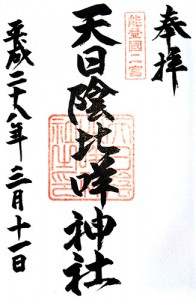 奉拝
能登國二宮
天日陰比咩神社
平成二十八年三月十一日